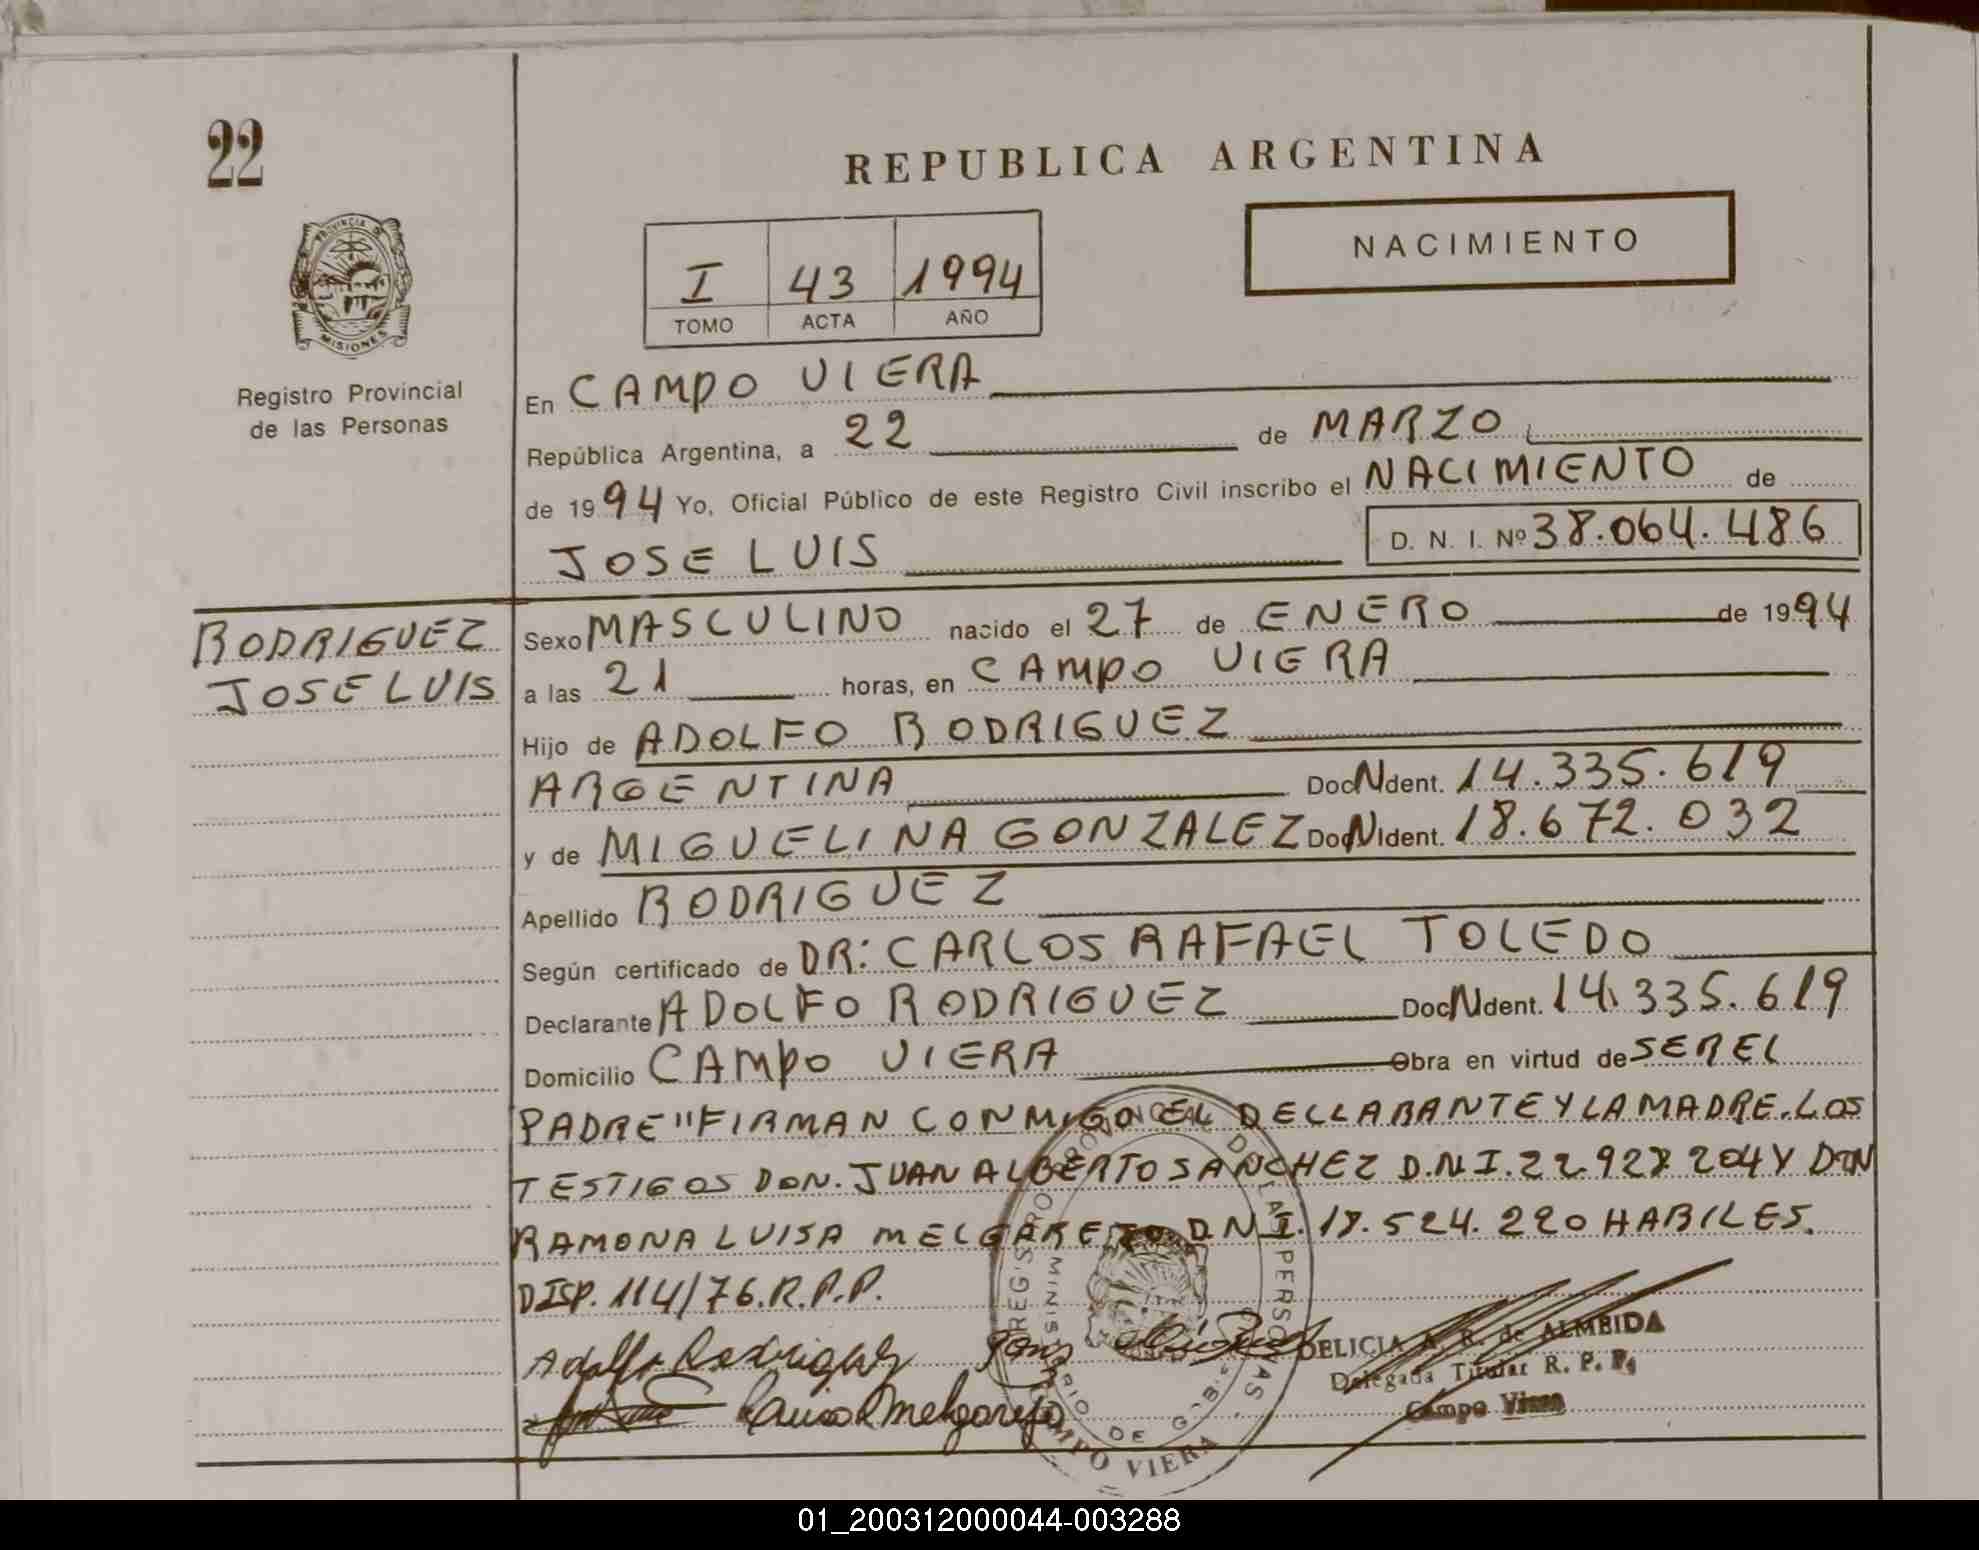 22
REPUBLICA ARGENTINA
NACIMIENTO
I 43 1994
TOMO ACTA AÑO
PROVINCIA DE
MISIONES
Registro Provincial
de las Personas
En CAMPO VIERA
República Argentina, a 22 de MARZO
de 1994 Yo, Oficial Público de este Registro Civil inscribo el NACIMIENTO de
JOSE LUIS D. N. I. Nº 38.064.486
RODRIGUEZ
JOSE LUIS
Sexo MASCULINO nacido el 27 de ENERO de 1994
a las 21 horas, en CAMPO VIERA
Hijo de ADOLFO RODRIGUEZ
ARGENTINA Doc N Ident. 14.335.619
y de MIGUELINA GONZALEZ Doc N Ident. 18.672.032
Apellido RODRIGUEZ
Según certificado de DR: CARLOS RAFAEL TOLEDO
Declarante ADOLFO RODRIGUEZ Doc N Ident. 14.335.619
Domicilio CAMPO VIERA Obra en virtud de SER EL
PADRE" FIRMAN CONMIGO EL DECLARANTE Y LA MADRE. LOS
TESTIGOS DON. JUAN ALBERTO SANCHEZ D.N.I. 22.928 204 Y DON
RAMONA LUISA MELGAREJO D.N.I. 18.524.220 HABILES.
DISP. 114/76. R.P.P.
Adolfo Rodriguez
Luisa Melgarejo
DELICIA A. R. de ALMEIDA
Delegada Titular R. P. P.
Campo Viera
REGISTRO PROVINCIAL DE LAS PERSONAS
MINISTERIO DE GOB.
CAMPO VIERA
01_200312000044-003288